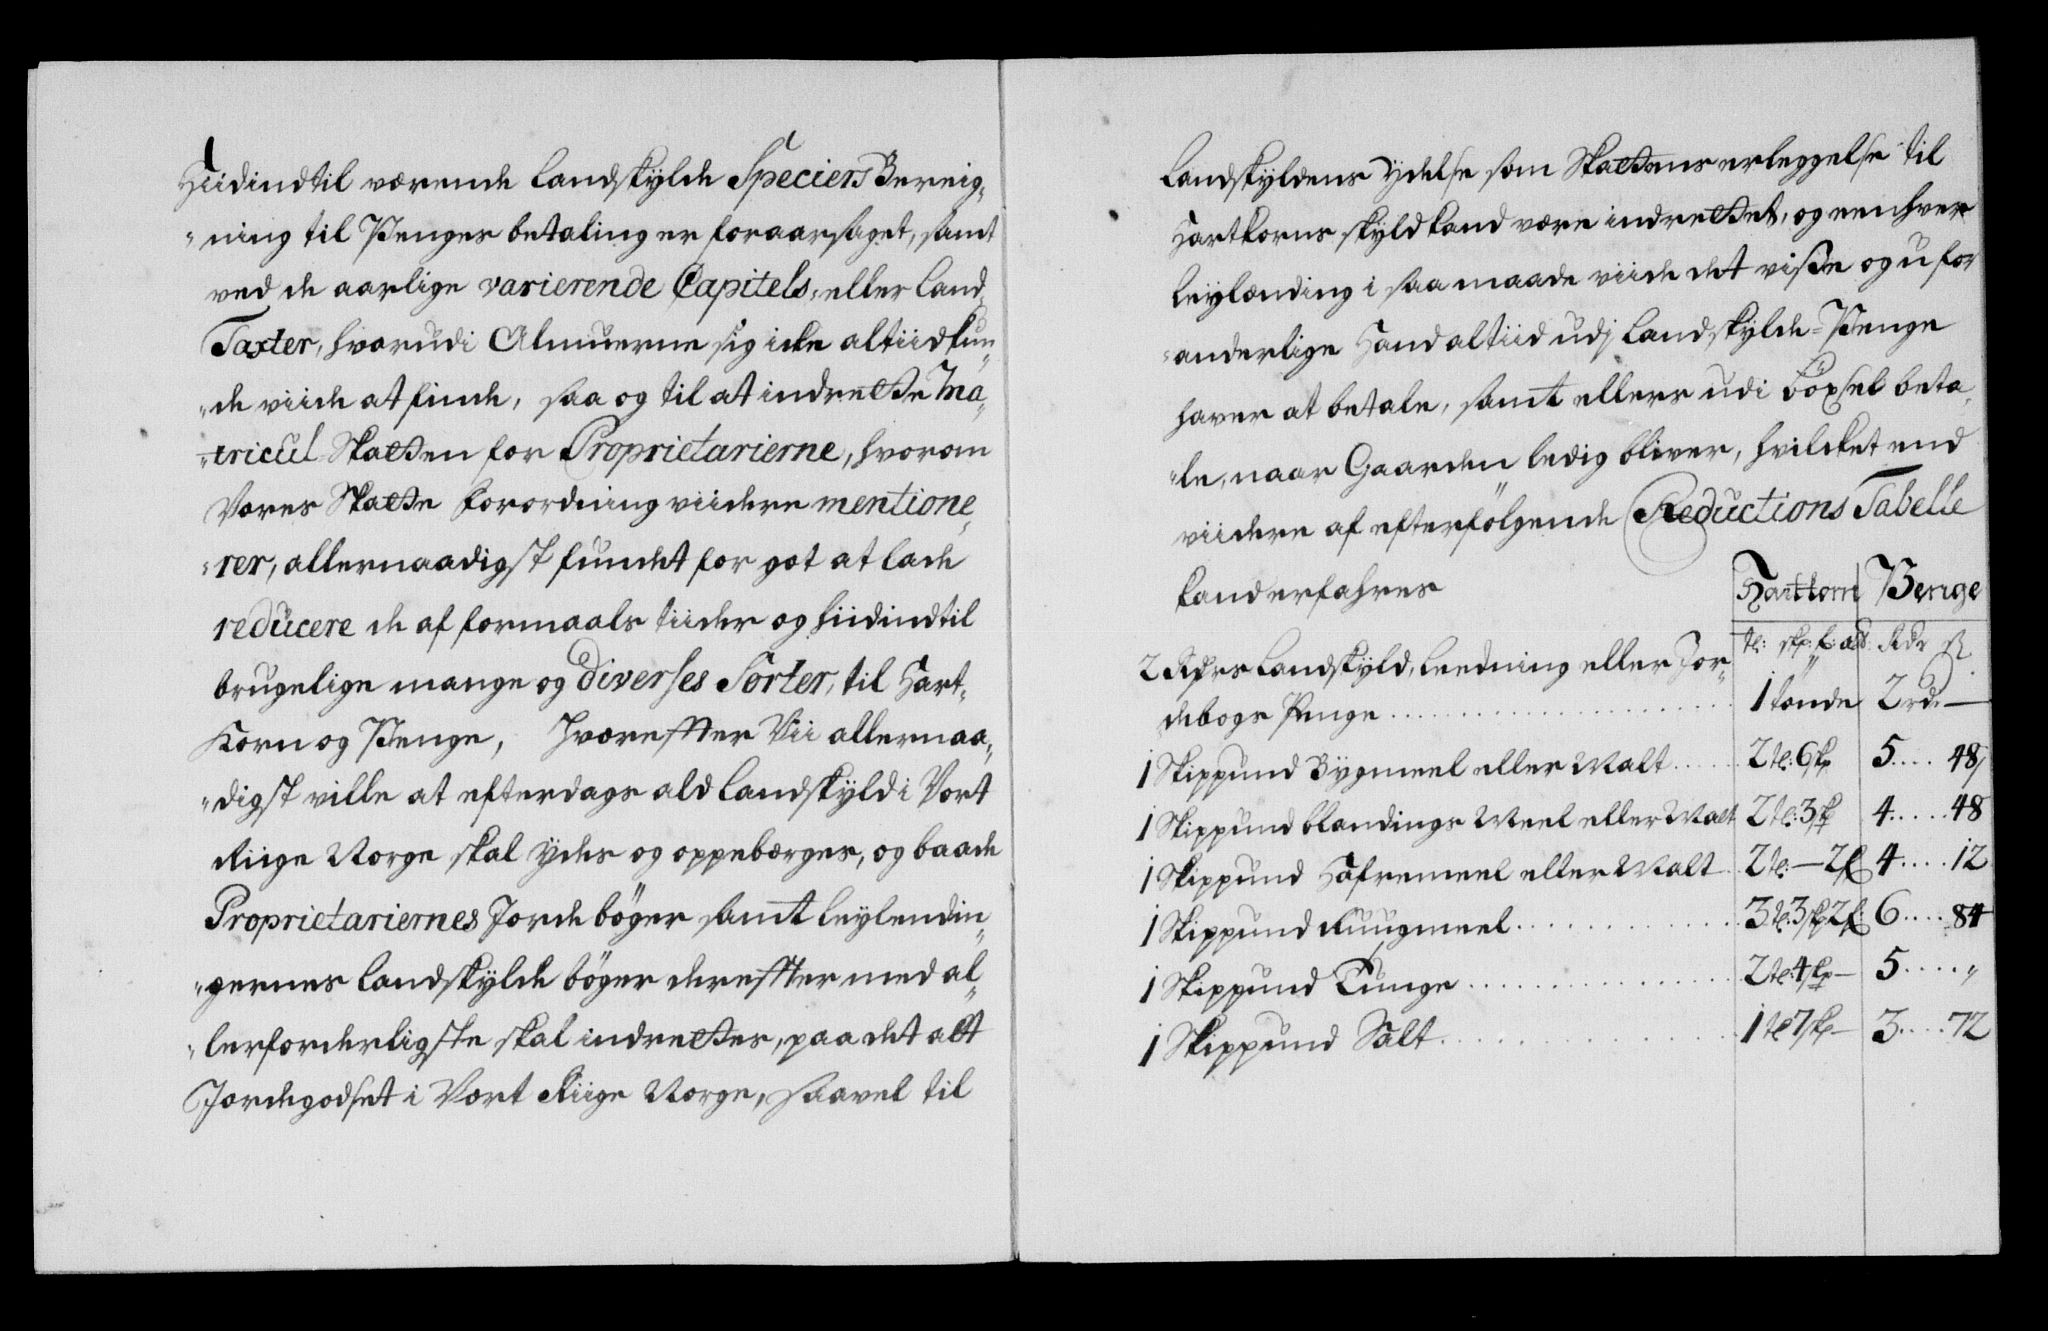 Hiidindtil værende Landskylde Speciers Bereig,
"ning til Penges betaling er foraarsaget, samt
ved de aarlige varierende Capitels, eller Land,
Taxter, hvorudi Almuerne sig icke altiid kun,
"de viide at finde, saa og til at indrette Ma,
"tricul Skatten for Proprietarierne, hvorom
Vores Skatte Forordning viidere mentione,
"rer, allernaadigst fundet for got at lade
reducere de af formaals tiider og hiidindtil
brugelige mange og diverses Sorter, til Hart,
Korn og Penge, Hvoreffter Vii allernaa,
"digst ville at efterdags ald Landskyld i Vort
Riige Norge skal ydes og oppebærges, og baade
Proprietariernes Jordebøger samt Leylendin,
"gernes Landskylde bøger dereffter med al,
"lerforderligste skal indrettes, paa det alt
Jordegodset i Vort Riige Norge, saavel til
Landskyldens Ydelse som Skattens erleggelse til
Hartkorns skyld kand være indrettet, og eenhver
Leylænding i saa maade viide det visse og ufor
"anderlige Hand altiid udj Landskylde-Penge
haver at betale, samt ellers udi böxsel beta,
"le, naar Gaarden ledig bliver, hvilcket end
viidere af efterfölgende Reductions Tabelle
kand erfahres
Hartkorn Penge
te: skp: f: alb Rdr ß
2 Rdrs Landskyld, Leedning eller Jor,
debogs Penge . . . . 1 tønde 2 rd. —
1 Skippund Bygmeel eller Malt . . . 2 te: 6 skp 5 . . . . 48
1 Skippund blandings Meel eller Malt 2 te: 3 skp 4 . . . . 48
1 Skippund Hafremeel eller Malt 2 te: — 2 f 4 . . . . 12
1 Skippund Ruugmeel . . . . 3 te: 3 skp 2 f: 6 . . . . 84
1 Skippund Tunge . . . . 2 te: 4 skp — 5 . . . . "
1 Skippund Salt . . . . 1 te 7 skp — 3 . . . . 72